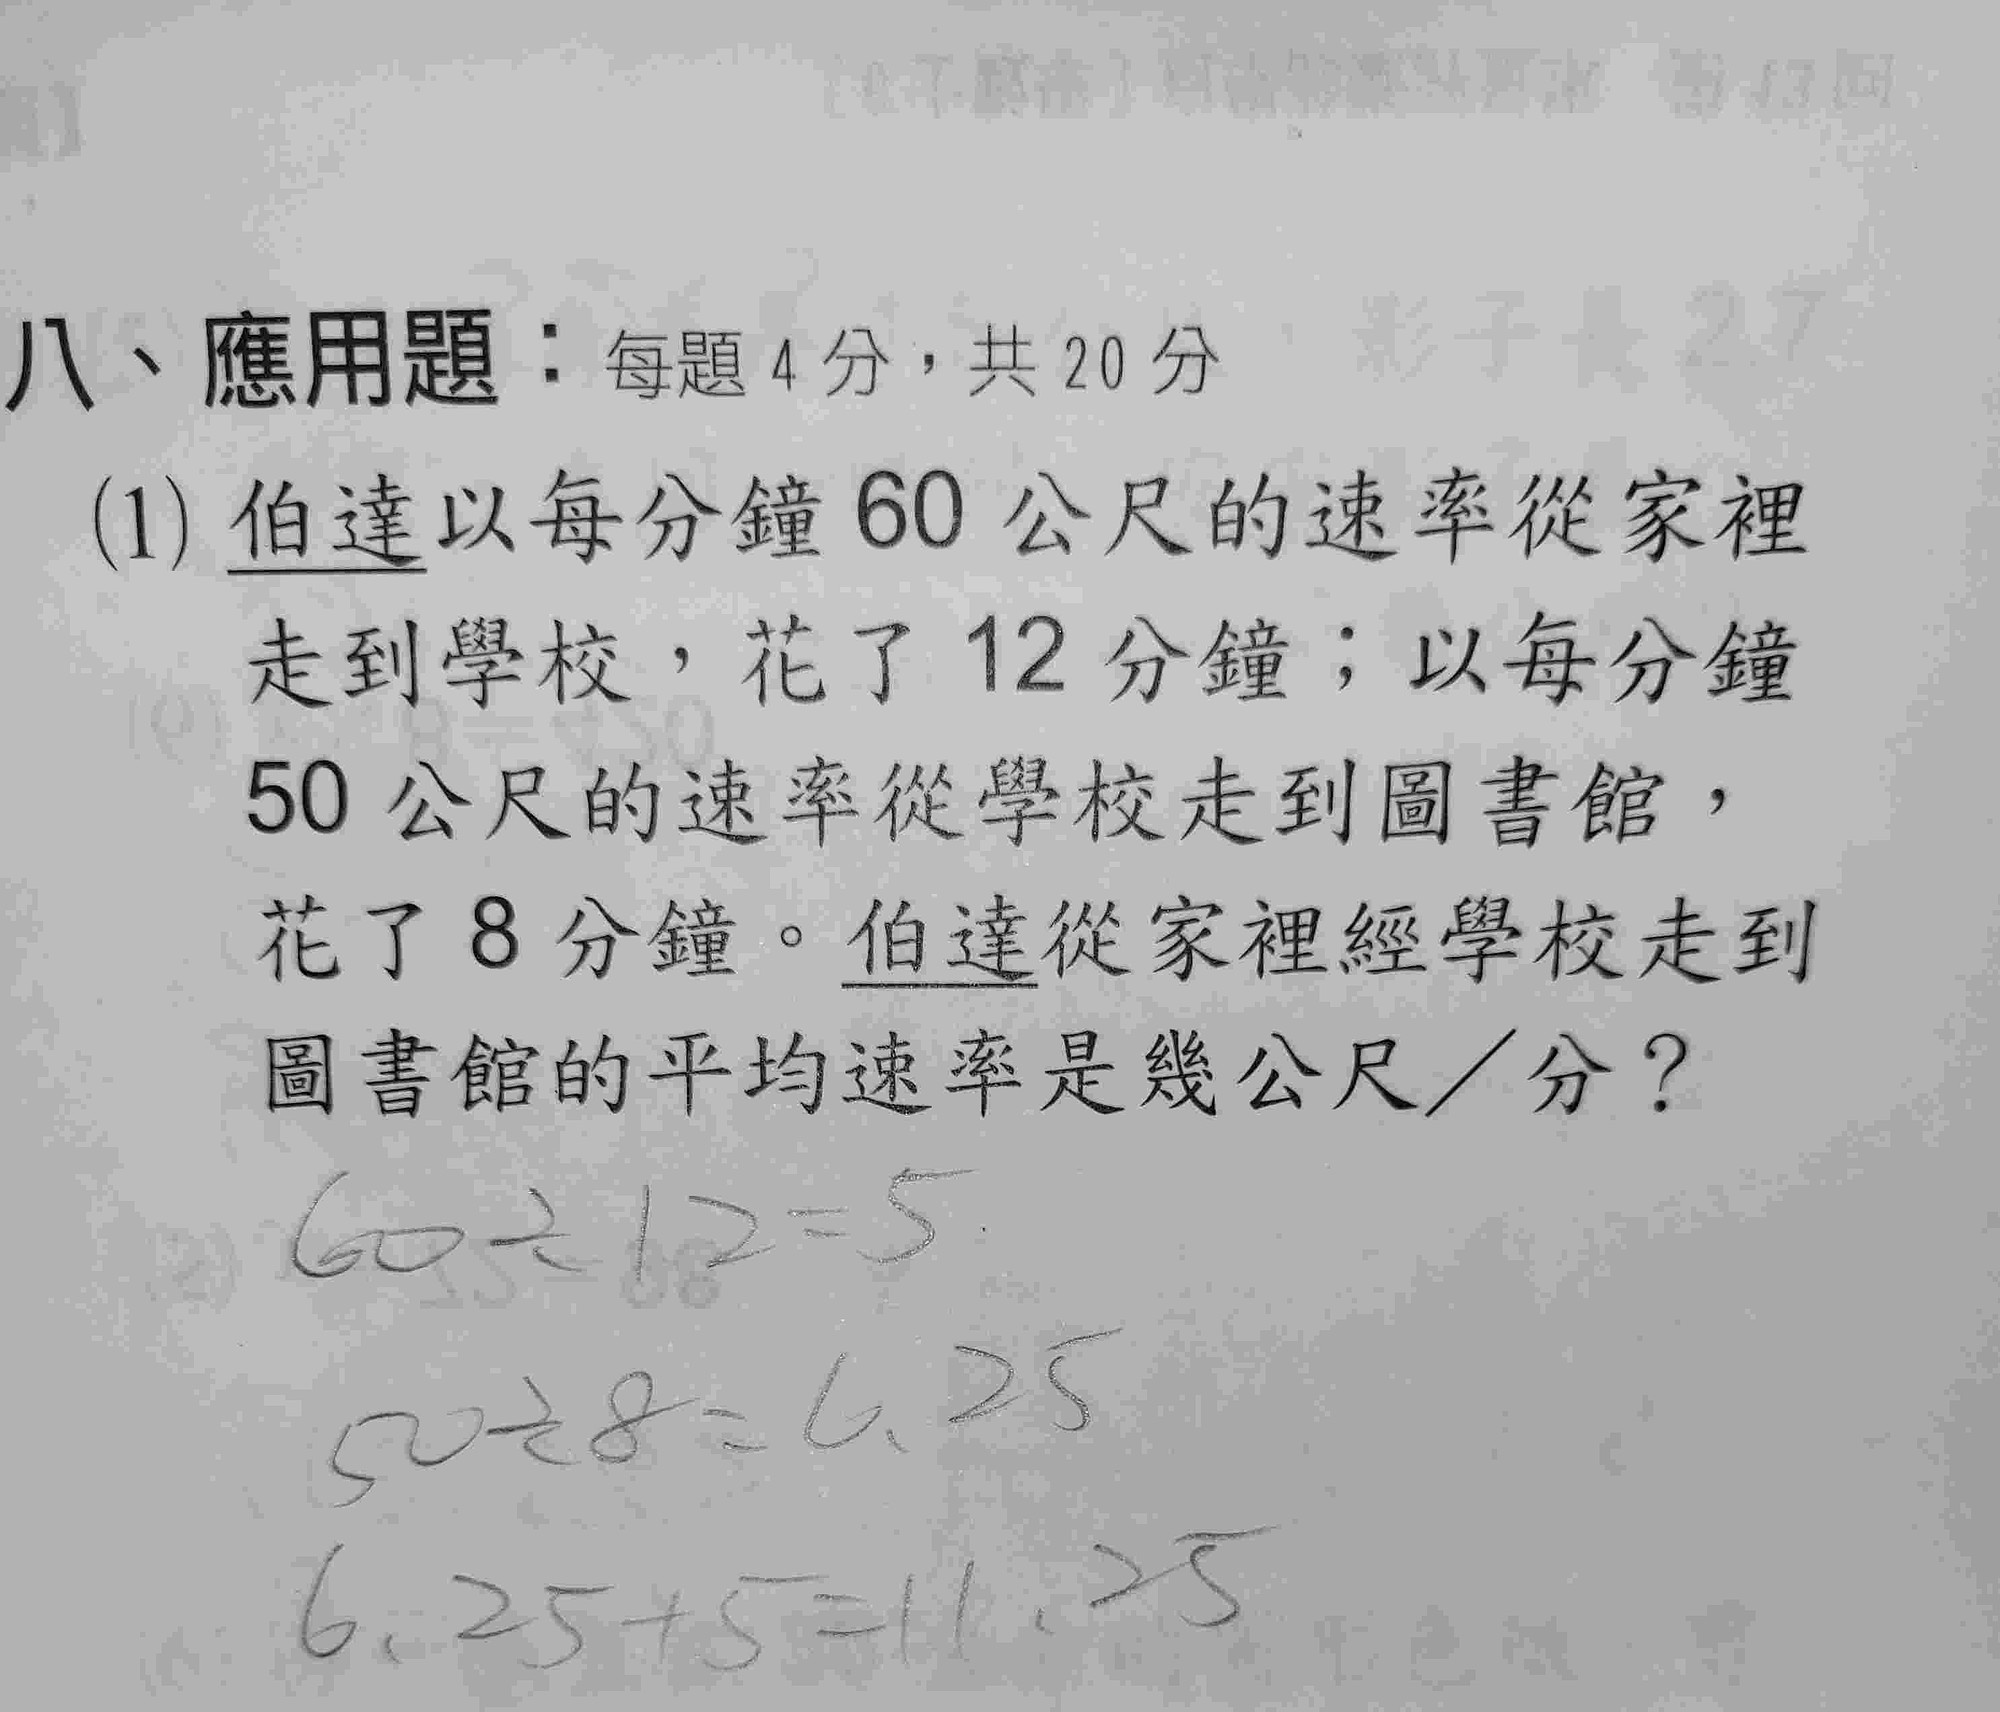 八、應用題：每題 4 分，共 20 分
(1) 伯達以每分鐘 60 公尺的速率從家裡
走到學校，花了 12 分鐘；以每分鐘
50 公尺的速率從學校走到圖書館，
花了 8 分鐘。伯達從家裡經學校走到
圖書館的平均速率是幾公尺／分？
60÷12=5
50÷8=6.25
6.25+5=11.25